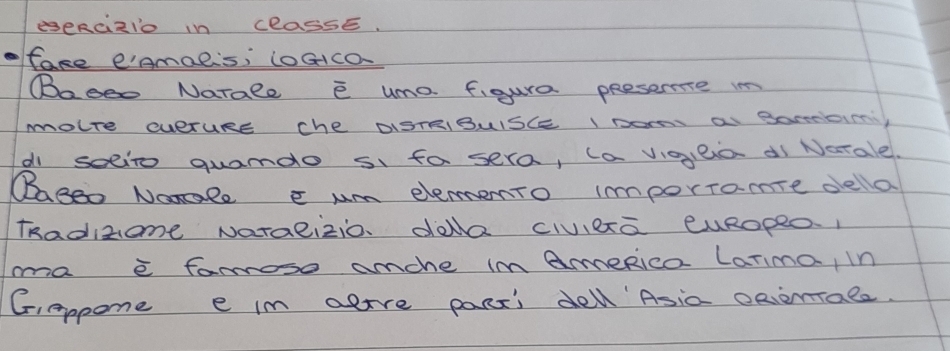 esercizio in classe.
• fare l'analisi logica
Babbo Natale è una figura presente in
molte culture che distribuisce i doni ai bambini,
di solito quando si fa sera, la vigilia di Natale.
Babbo Natale è un elemento importante della
tradizione natalizia della civiltà europea,
ma è famoso anche in America Latina, in
Giappone e in altre parti dell'Asia orientale.